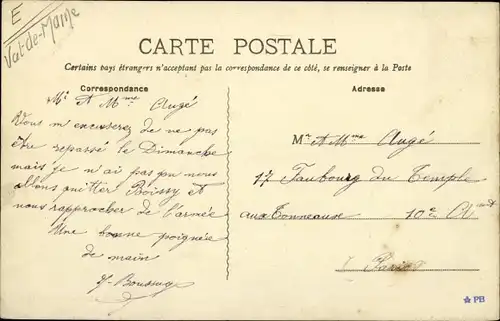 E
Val-de-Marne
CARTE POSTALE
Certains pays étrangers n'acceptant pas la correspondance de ce côté, se renseigner à la Poste
Correspondance
Mr et Mme Augé
Vous m'excuserez de ne pas
être repassé le Dimanche
mais je n'ai pas pu nous
allons quitter Boissy et
nous rapprocher de l'armée
Une bonne poignée
de main
Adresse
Mr et Mme Augé
17 Faubourg du Temple
aux Tonneaux 10e Ar
Paris
PB